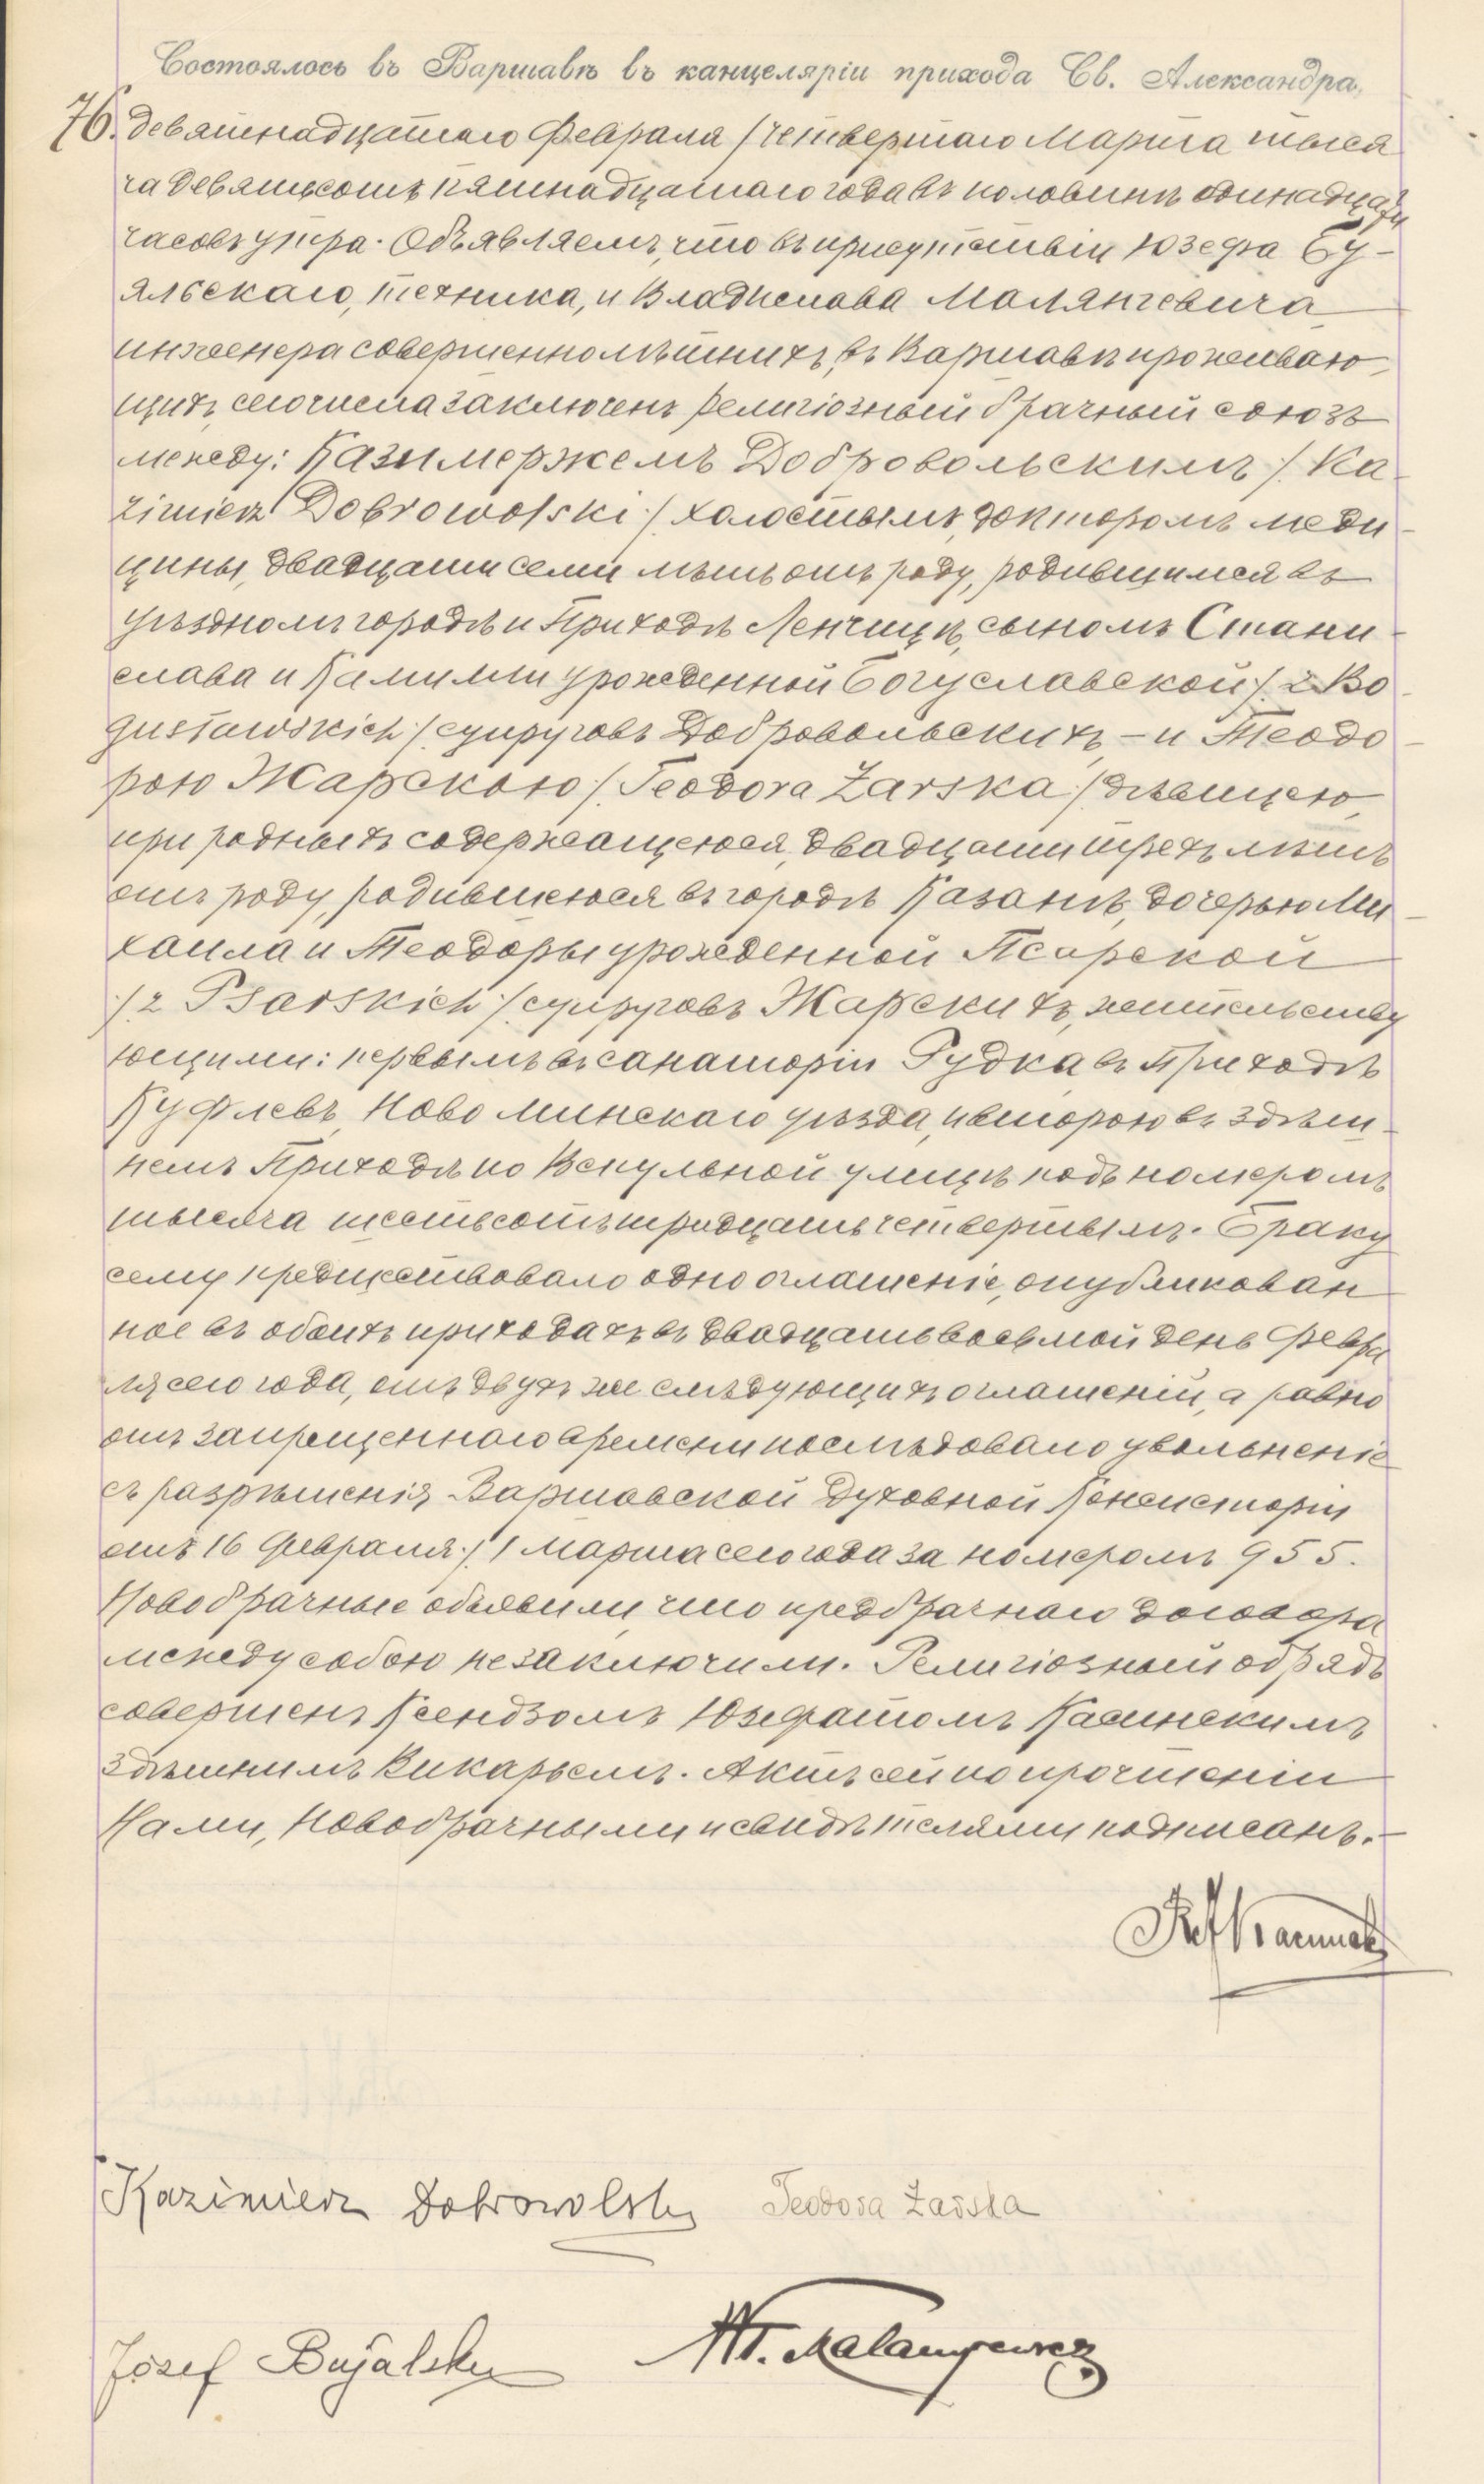 Состоялось въ Варшавѣ въ канцеляріи прихода Св. Александра,
76. девятнадцатаго Февраля / четвертаго Марта тыся
ча девятьсотъ пятнадцатаго года въ половинѣ одинадцаты
часовъ утра. Объявляемъ, что въ присутствіи Юзефа Бу-
яльскаго, техника, и Владислава Малянгевича
инженера совершеннолѣтнихъ, въ Варшавѣ проживаю
щихъ, сего числа заключенъ религіозный брачный союзъ
между: Казимержемъ Добровольскимъ /. Ka
zimierz Dobrowolski ./ холостымъ, докторомъ меди
цины, двадцати семи лѣтъ отъ роду, родившимся въ
уѣздномъ городѣ и Приходѣ Ленчицѣ, сыномъ Стани
слава и Камилли урожденной Богуславской /. z Bo
gusławskich ./ супруговъ Добровольскихъ, – и Теодо
рою Жарскою /. Teodora Żarska ./ дѣвицею,
при родныхъ содержащеюся, двадцати трехъ лѣтъ
отъ роду, родившеюся въ городѣ Казанѣ, дочерью Ми
хаила и Теодоры урожденной Псарской
/. z Psarskich ./ супруговъ Жарскихъ, жительству
ющими: первымъ въ санаторіи Рудка въ Приходѣ
Куфлевъ, Ново Минскаго уѣзда, и второю въ здѣш
немъ Приходѣ по Вспульной улицѣ подъ номеромъ
тысяча шестьсотъ тридцать четвертымъ. Браку
сему предшествовало одно оглашеніе, опубликован
ное въ обоихъ приходахъ въ двадцать восьмой день Февра
ля сего года, отъ двухъ же слѣдующихъ оглашеній, а равно
отъ запрещеннаго времени послѣдовало увольненіе
съ разрѣшенія Варшавской Духовной Консисторіи
отъ 16 Февраля ./. 1 марта сего года за номеромъ 955.
Новобрачные объявили, что предбрачнаго договора
между собою не заключили. Религіозный обрядъ
совершенъ Ксендзомъ Юзефатомъ Касинскимъ
здѣшнимъ Викарьемъ. Актъ сей по прочтеніи
Нами, Новобрачными и свидѣтелями подписанъ. –
Kazimierz Dobrowolski Teodora Żarska
Józef Bujalski Wł. Malangiewicz